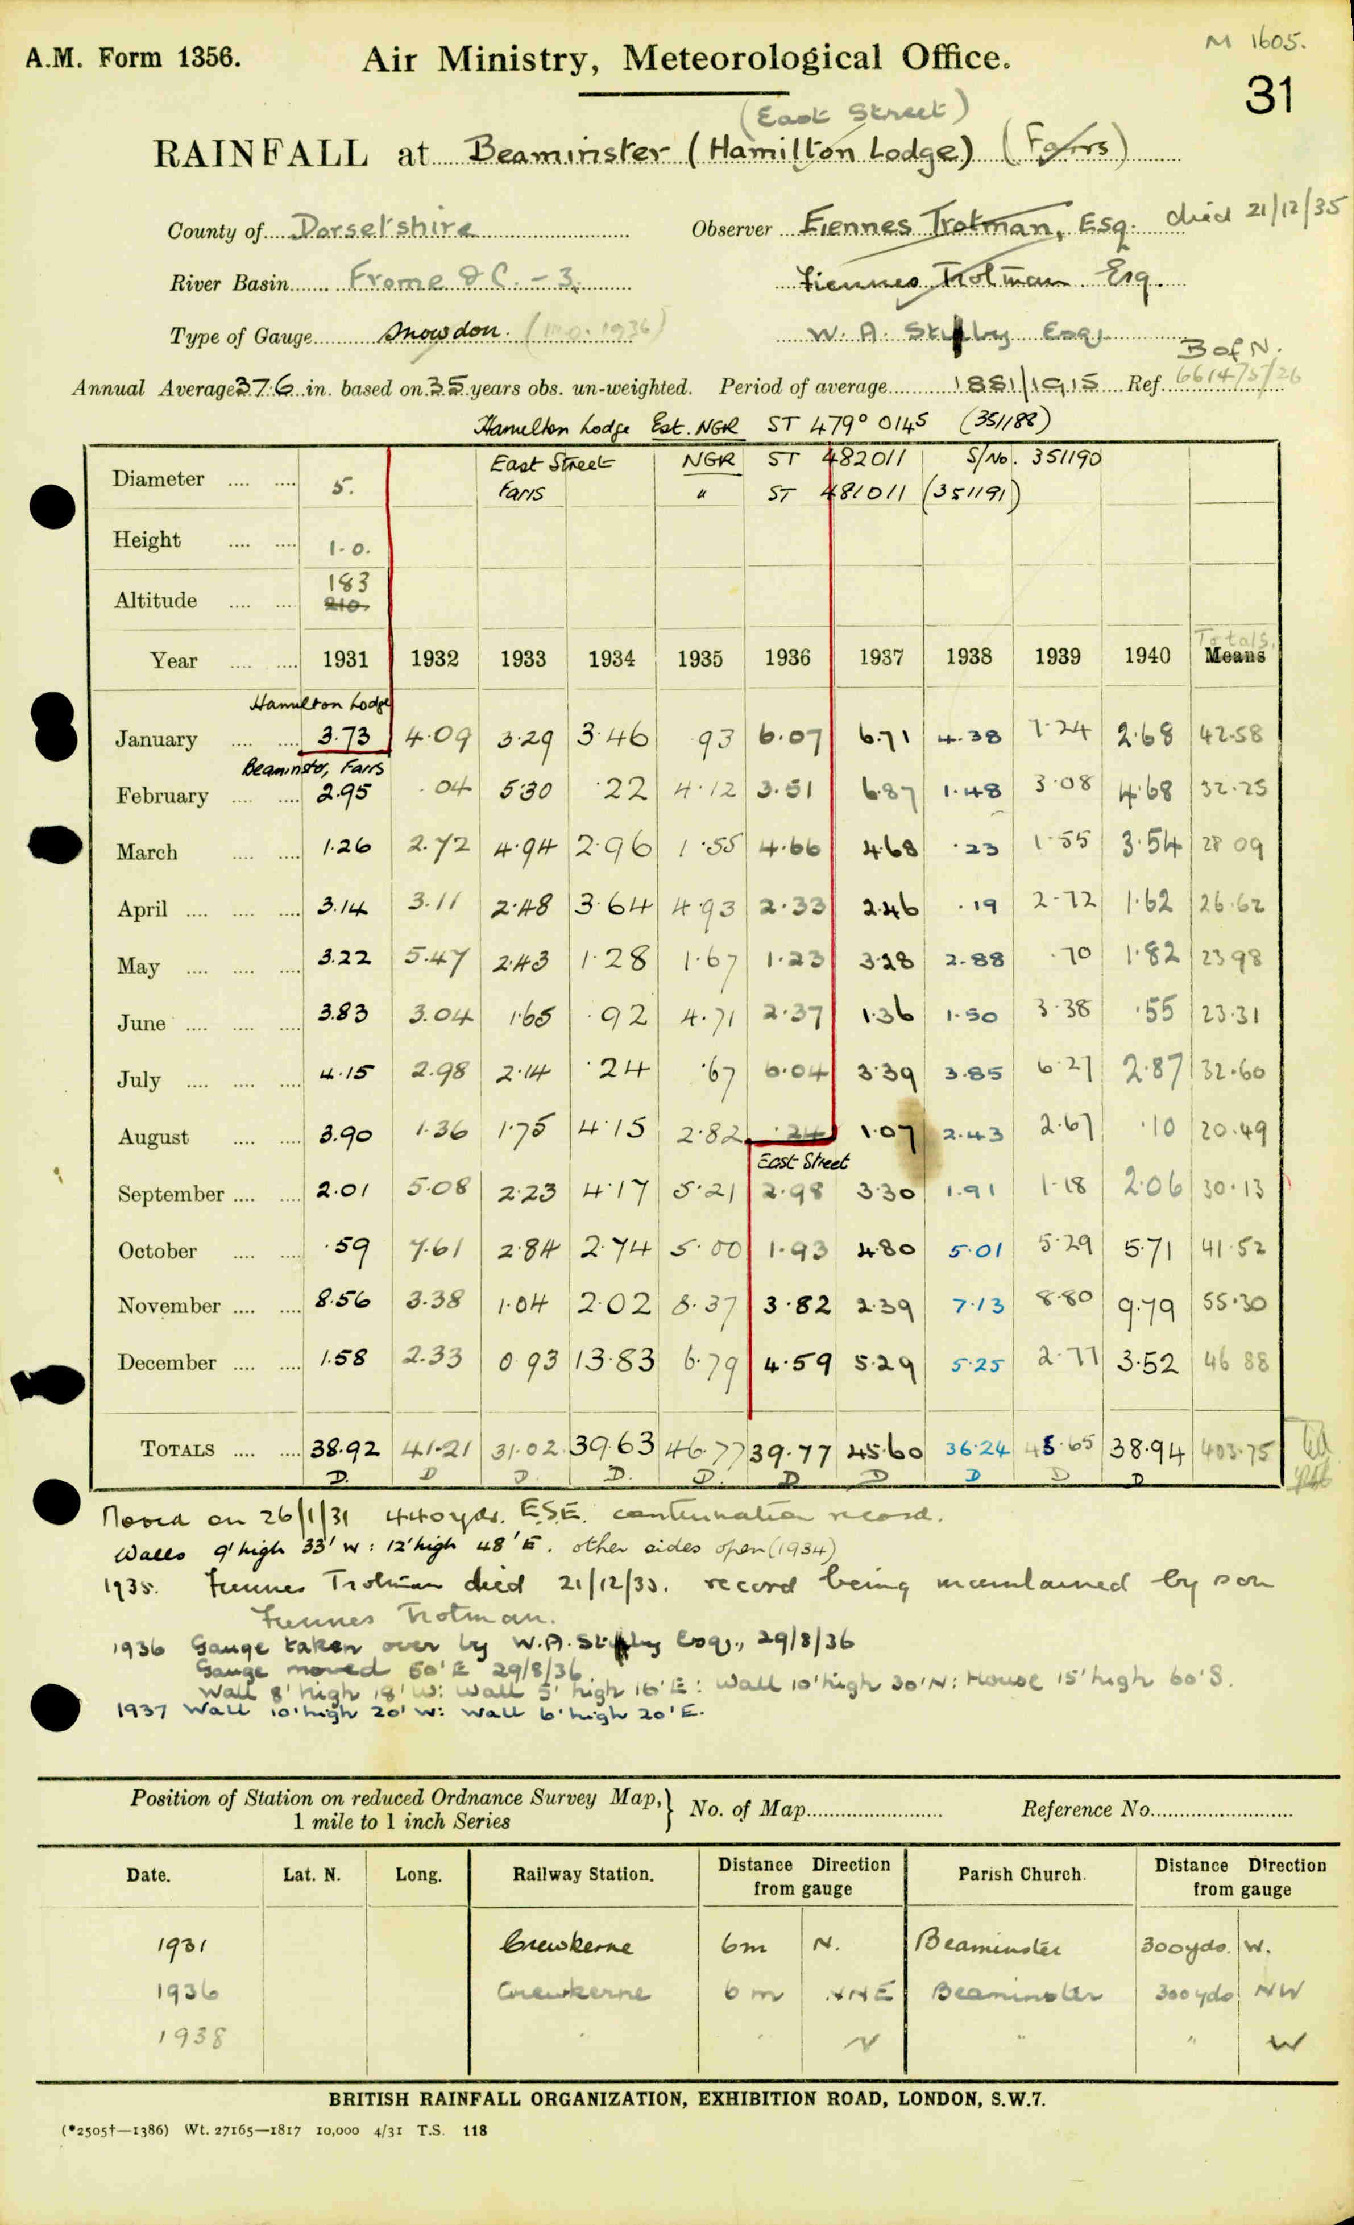 A.M. Form 1356. Air Ministry, Meteorological Office. M 1605.
31
(East Street)
RAINFALL at Beaminster (Hamilton Lodge) (Farrs)
County of Dorsetshire Observer Fiennes Trotman, Esq. died 21/12/35
River Basin Frome &C. - 3. Fiennes Trotman Esq.
Type of Gauge Snowdon. (M.O. 1936) W. A. Esq.
B of N.
Annual Average 37.6 in. based on 35 years obs. un-weighted. Period of average 1881/1915 Ref. 661475/26
Hamilton Lodge Est. NGR ST 479° 0145 (351188)
East Street NGR ST 482011 S/No. 351190
Diameter .... .... 5. Farrs " ST 481011 (351191)
Height .... .... 1-0.
183
Altitude .... .... 210.
Totals.
Year .... .... 1931 1932 1933 1934 1935 1936 1937 1938 1939 1940 Means
Hamilton Lodge
January .... .... 3.73 4.09 3.29 3.46 .93 6.07 6.71 4.38 7.24 2.68 42.58
Beaminster, Farrs
February .... .... 2.95 .04 5.30 .22 4.12 3.51 6.87 1.48 3.08 4.68 32.25
March .... .... 1.26 2.72 4.94 2.96 1.55 4.66 4.68 .23 1.55 3.54 28.09
April .... .... .... 3.14 3.11 2.48 3.64 4.93 2.33 2.46 .19 2.72 1.62 26.62
May .... .... .... 3.22 5.47 2.43 1.28 1.67 1.23 3.28 2.88 .70 1.82 23.98
June .... .... .... 3.83 3.04 1.65 .92 4.71 2.37 1.36 1.50 3.38 .55 23.31
July .... .... .... 4.15 2.98 2.14 .24 .67 6.04 3.39 3.85 6.27 2.87 32.60
August .... .... 3.90 1.36 1.75 4.15 2.82 .24 1.07 2.43 2.67 .10 20.49
East Street
September .... .... 2.01 5.08 2.23 4.17 5.21 2.98 3.30 1.91 1.18 2.06 30.13
October .... .... .59 7.61 2.84 2.74 5.00 1.93 4.80 5.01 5.29 5.71 41.52
November .... .... 8.56 3.38 1.04 2.02 8.37 3.82 2.39 7.13 8.80 9.79 55.30
December .... .... 1.58 2.33 0.93 13.83 6.79 4.59 5.29 5.25 2.77 3.52 46.88
TOTALS .... .... 38.92 41.21 31.02 39.63 46.77 39.77 45.60 36.24 45.65 38.94 403.75
D. D D. D. D. D D D D D
Moved on 26/1/31 440 yds. E.S.E. continuation record.
Walls 9' high 33' W : 12' high 48' E. other sides open (1934)
1935. Fiennes Trotman died 21/12/35. record being maintained by son
Fiennes Trotman.
1936 Gauge taken over by W.A. Esq., 29/8/36
Gauge moved 50' E 29/8/36.
Wall 8' high 18' W: Wall 5' high 16' E: Wall 10' high 30' N: House 15' high 60' S.
1937 Wall 10' high 20' W: Wall 6' high 20' E.
Position of Station on reduced Ordnance Survey Map, 1 mile to 1 inch Series } No. of Map Reference No.
Date. Lat. N. Long. Railway Station. Distance Direction from gauge Parish Church. Distance Direction from gauge
1931 Crewkerne 6m N. Beaminster 300yds. W.
1936 Crewkerne 6 m NNE Beaminster 300yds NW
1938 " " N " " W
BRITISH RAINFALL ORGANIZATION, EXHIBITION ROAD, LONDON, S.W.7.
(*2505†—1386) Wt. 27165—1817 10,000 4/31 T.S. 118